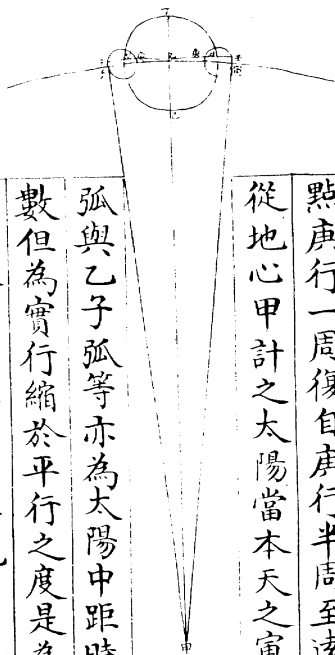 點庚行一周復自庚行半周至遠
從地心甲計之太陽當本天之寅
丁
己
甲
弧與乙子弧等亦為太陽中距時
數但為實行縮於平行之度是為